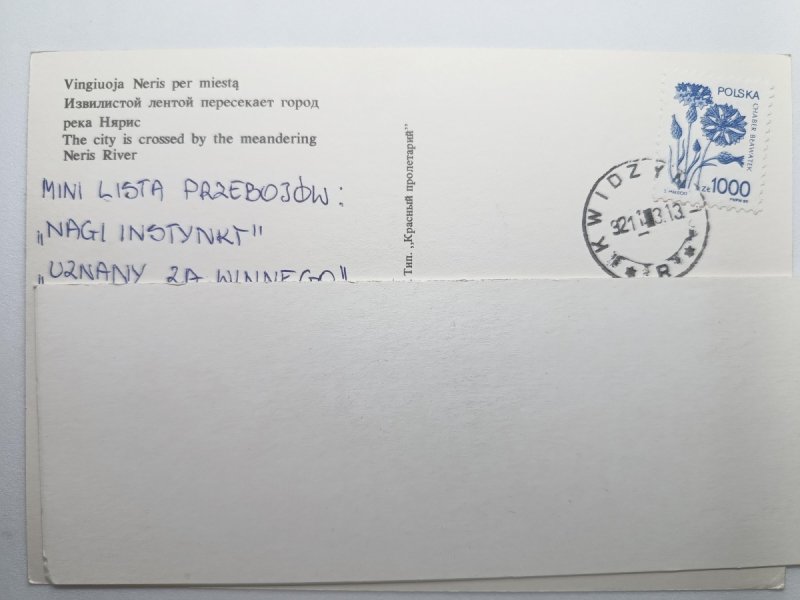 Vingiuoja Neris per miestą
Извилистой лентой пересекает город
река Нярис
The city is crossed by the meandering
Neris River
MINI LISTA PRZEBOJÓW:
„NAGI INSTYNKT"
„UZNANY ZA WINNEGO"
Тип. „Красный пролетарий"
POLSKA
CHABER BŁAWATEK
ZŁ 1000
KWIDZYN